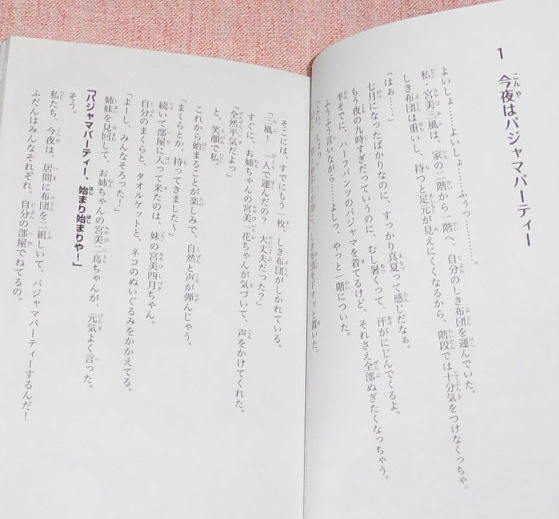 1 今夜はパジャマパーティー
よいしょ……よいしょ……ふぅっ……。
私、宮美三風は、家の二階から一階へ、自分のしき布団を運んでいた。
しき布団は重いし、持つと足元が見えにくくなるから、階段では十分気をつけなくっちゃ。
「はぁ……」
七月になったばかりなのに、すっかり真夏って感じだなぁ。
もう夜の九時すぎだっていうのに、むし暑くって、汗がにじんでくるよ。
半そでに、ハーフパンツのパジャマを着てるけど、それさえ全部ぬぎたくなっちゃう。
ふうふう言いながら……よしっ、やっと一階についた。
そこには、すでにもう一枚、しき布団がしかれている。
「三風！ 一人で運んだの？ 大丈夫だった？」
すぐに、お姉ちゃんの宮美一花ちゃんが気づいて、声をかけてくれた。
「全然平気だよっ」
と、笑顔で私。
これから始まることが楽しみで、自然と声が弾んじゃう。
「まくらとか、持ってきました～」
続いて部屋に入って来たのは、妹の宮美四月ちゃん。
自分のまくらと、タオルケットと、ネコのぬいぐるみをかかえてる。
「よーし、みんなそろったー！」
姉妹を見回して、お姉ちゃんの宮美二鳥ちゃんが、元気よく言った。
「パジャマパーティー、始まり始まりや！」
そう。
私たち、今夜は、居間に布団を二組しいて、パジャマパーティーするんだ！
ふだんはみんなそれぞれ、自分の部屋でねてるの。